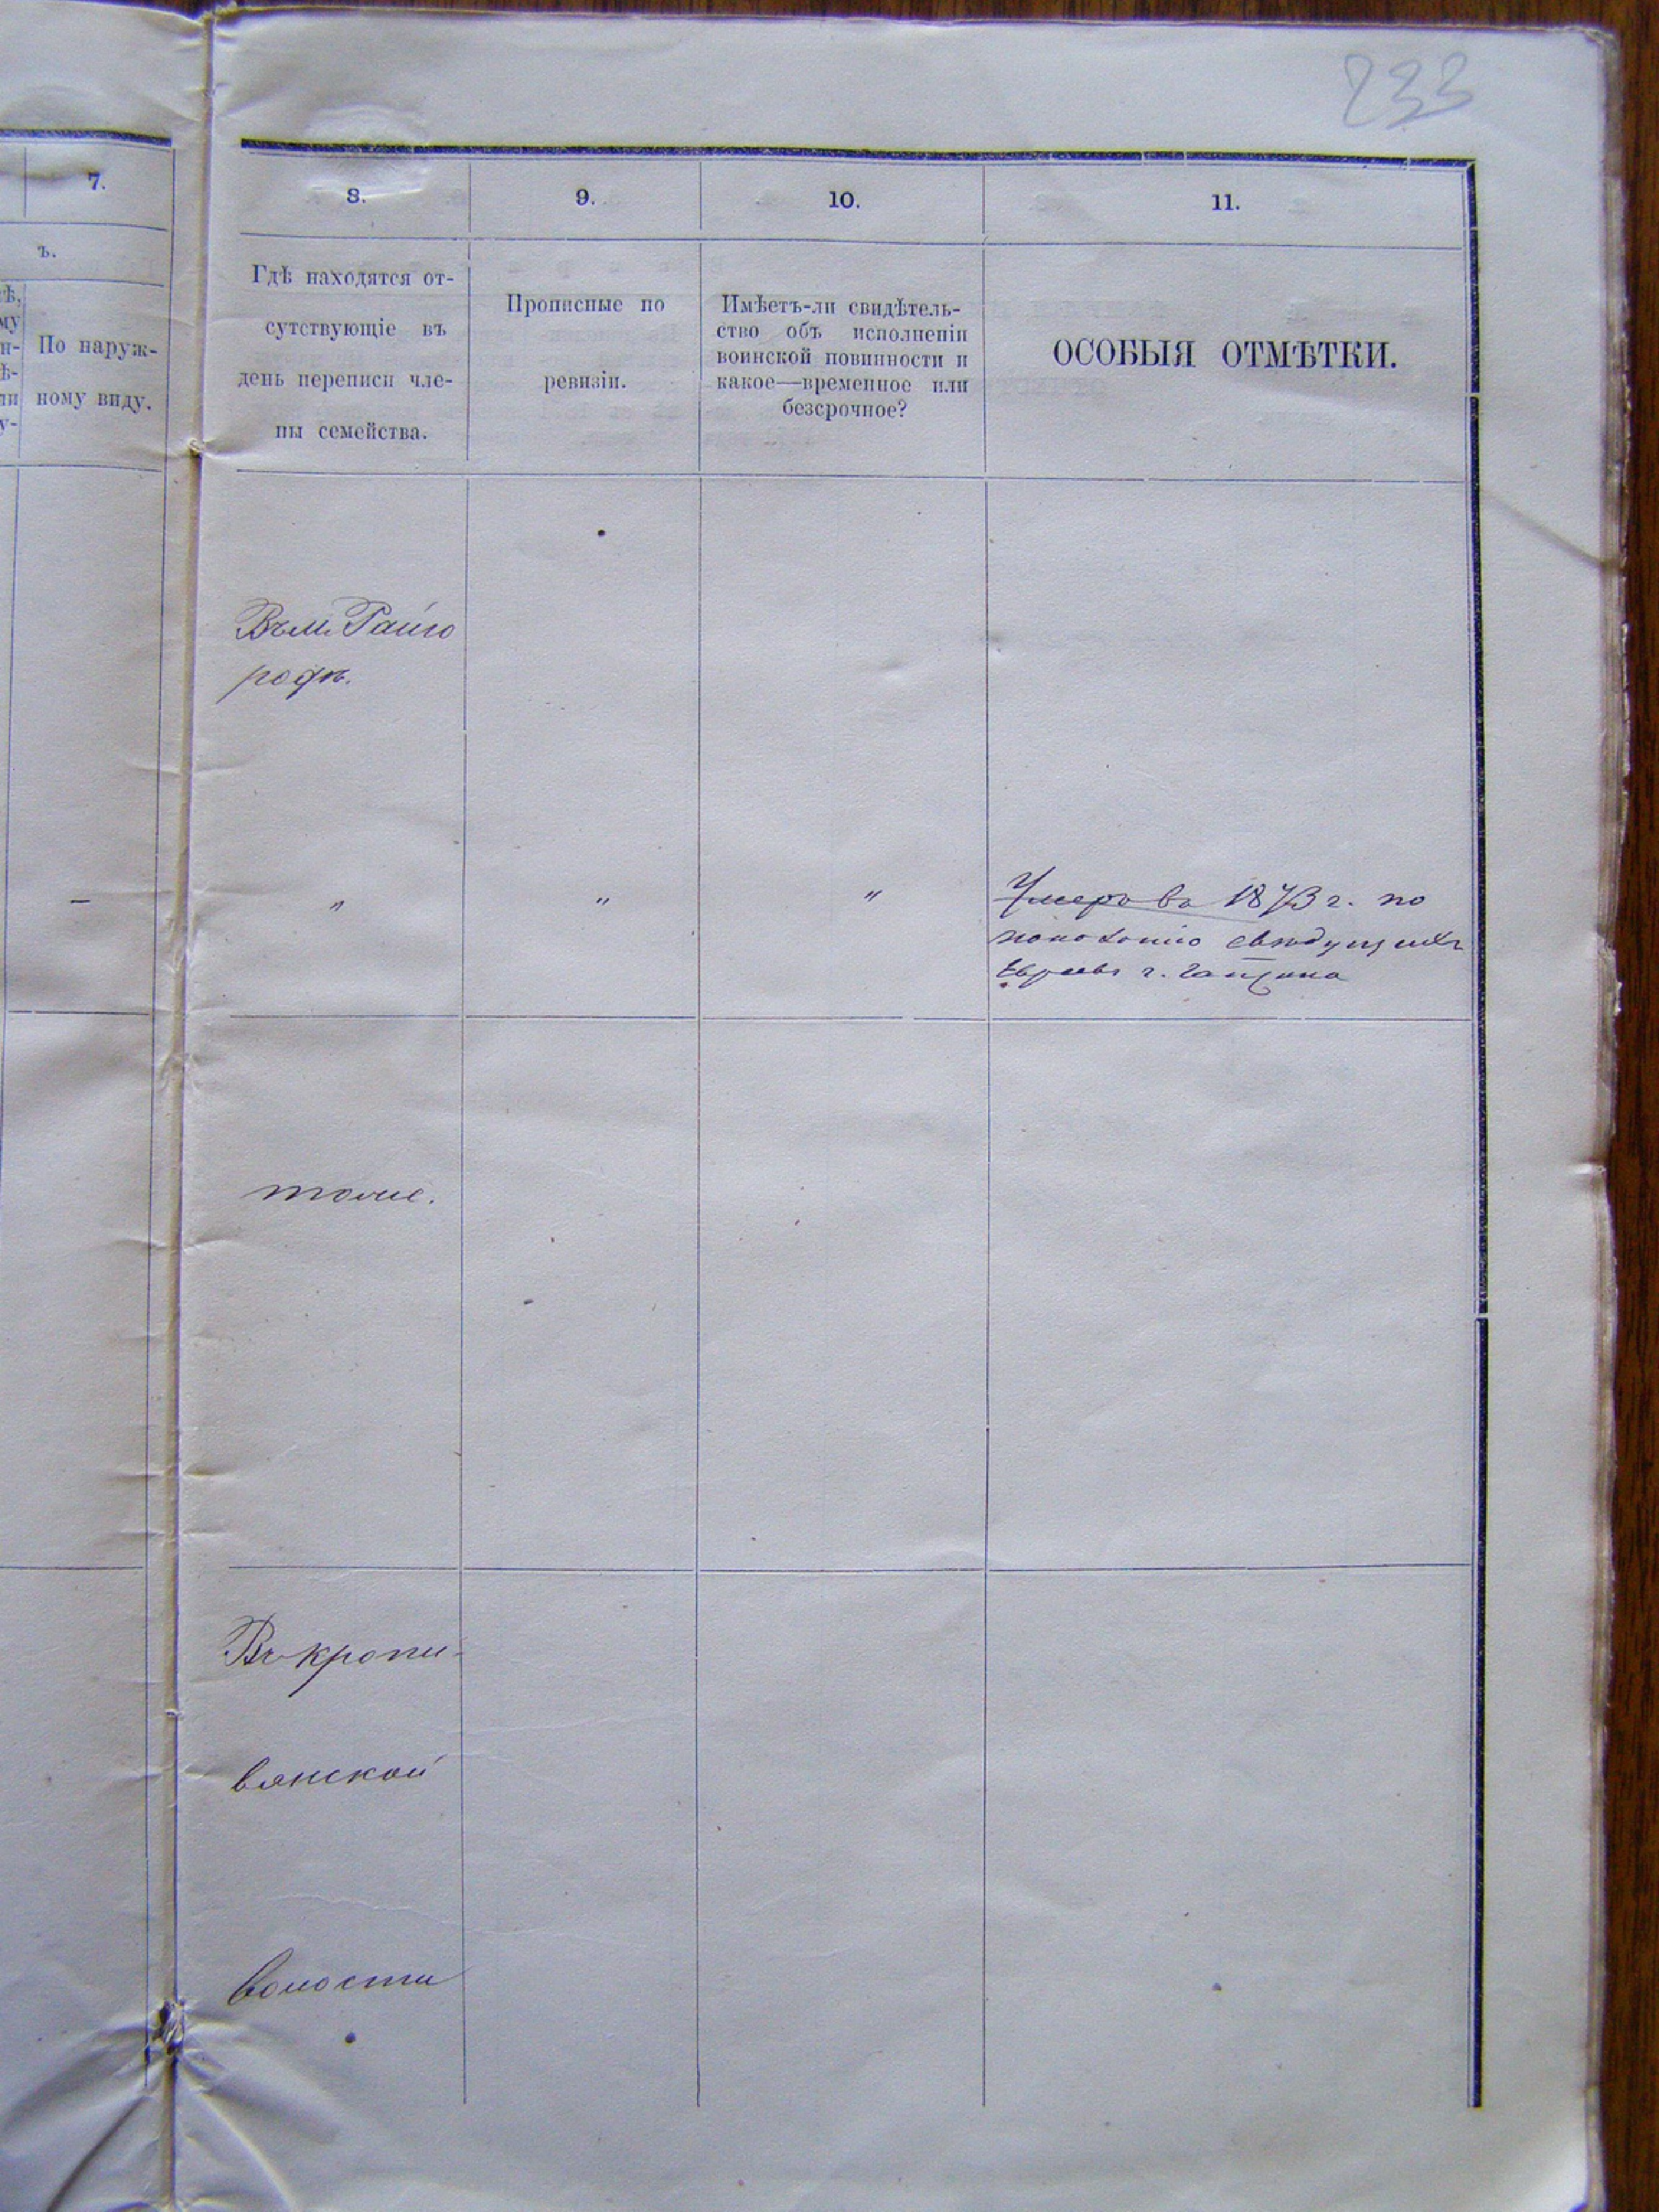 233
7.
ъ.
По наруж-
ному виду.
8.
9.
10.
11.
Гдѣ находятся от-
сутствующіе въ
день переписи чле-
ны семейства.
Прописные по
ревизіи.
Имѣетъ-ли свидѣтель-
ство объ исполненіи
воинской повинности и
какое—временное или
безсрочное?
ОСОБЫЯ ОТМѢТКИ.
Въ м. Райго
родѣ.
–
"
"
"
Умеръ въ 1873 г. по
показанію свѣдущихъ
Евреевъ г.
тоже.
Въ Кропи-
вянской
волости